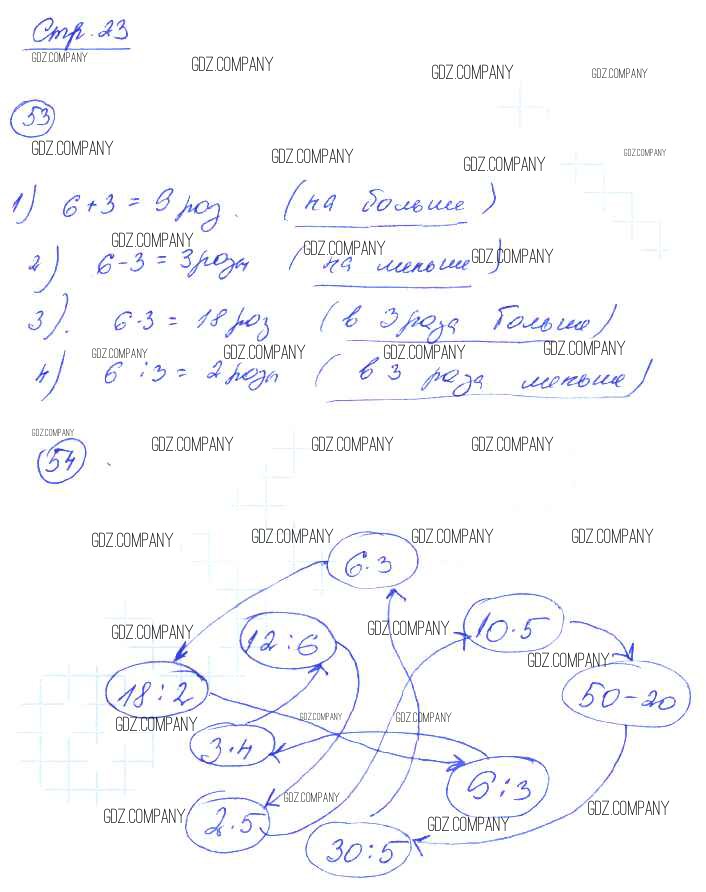 Стр. 23
GDZ.COMPANY GDZ.COMPANY GDZ.COMPANY GDZ.COMPANY
53
GDZ.COMPANY GDZ.COMPANY GDZ.COMPANY GDZ.COMPANY
1) 6+3 = 9 роз. (на больше)
GDZ.COMPANY GDZ.COMPANY GDZ.COMPANY
2) 6-3 = 3 розы (на меньше)
3). 6·3 = 18 роз (в 3 раза больше)
GDZ.COMPANY GDZ.COMPANY GDZ.COMPANY GDZ.COMPANY
4) 6 : 3 = 2 розы (в 3 раза меньше)
GDZ.COMPANY GDZ.COMPANY GDZ.COMPANY GDZ.COMPANY
54
GDZ.COMPANY GDZ.COMPANY GDZ.COMPANY GDZ.COMPANY
6·3
GDZ.COMPANY 12:6 GDZ.COMPANY 10·5
GDZ.COMPANY
18:2 50-20
GDZ.COMPANY GDZ.COMPANY GDZ.COMPANY
3·4
9:3
GDZ.COMPANY GDZ.COMPANY GDZ.COMPANY GDZ.COMPANY
2·5
30:5